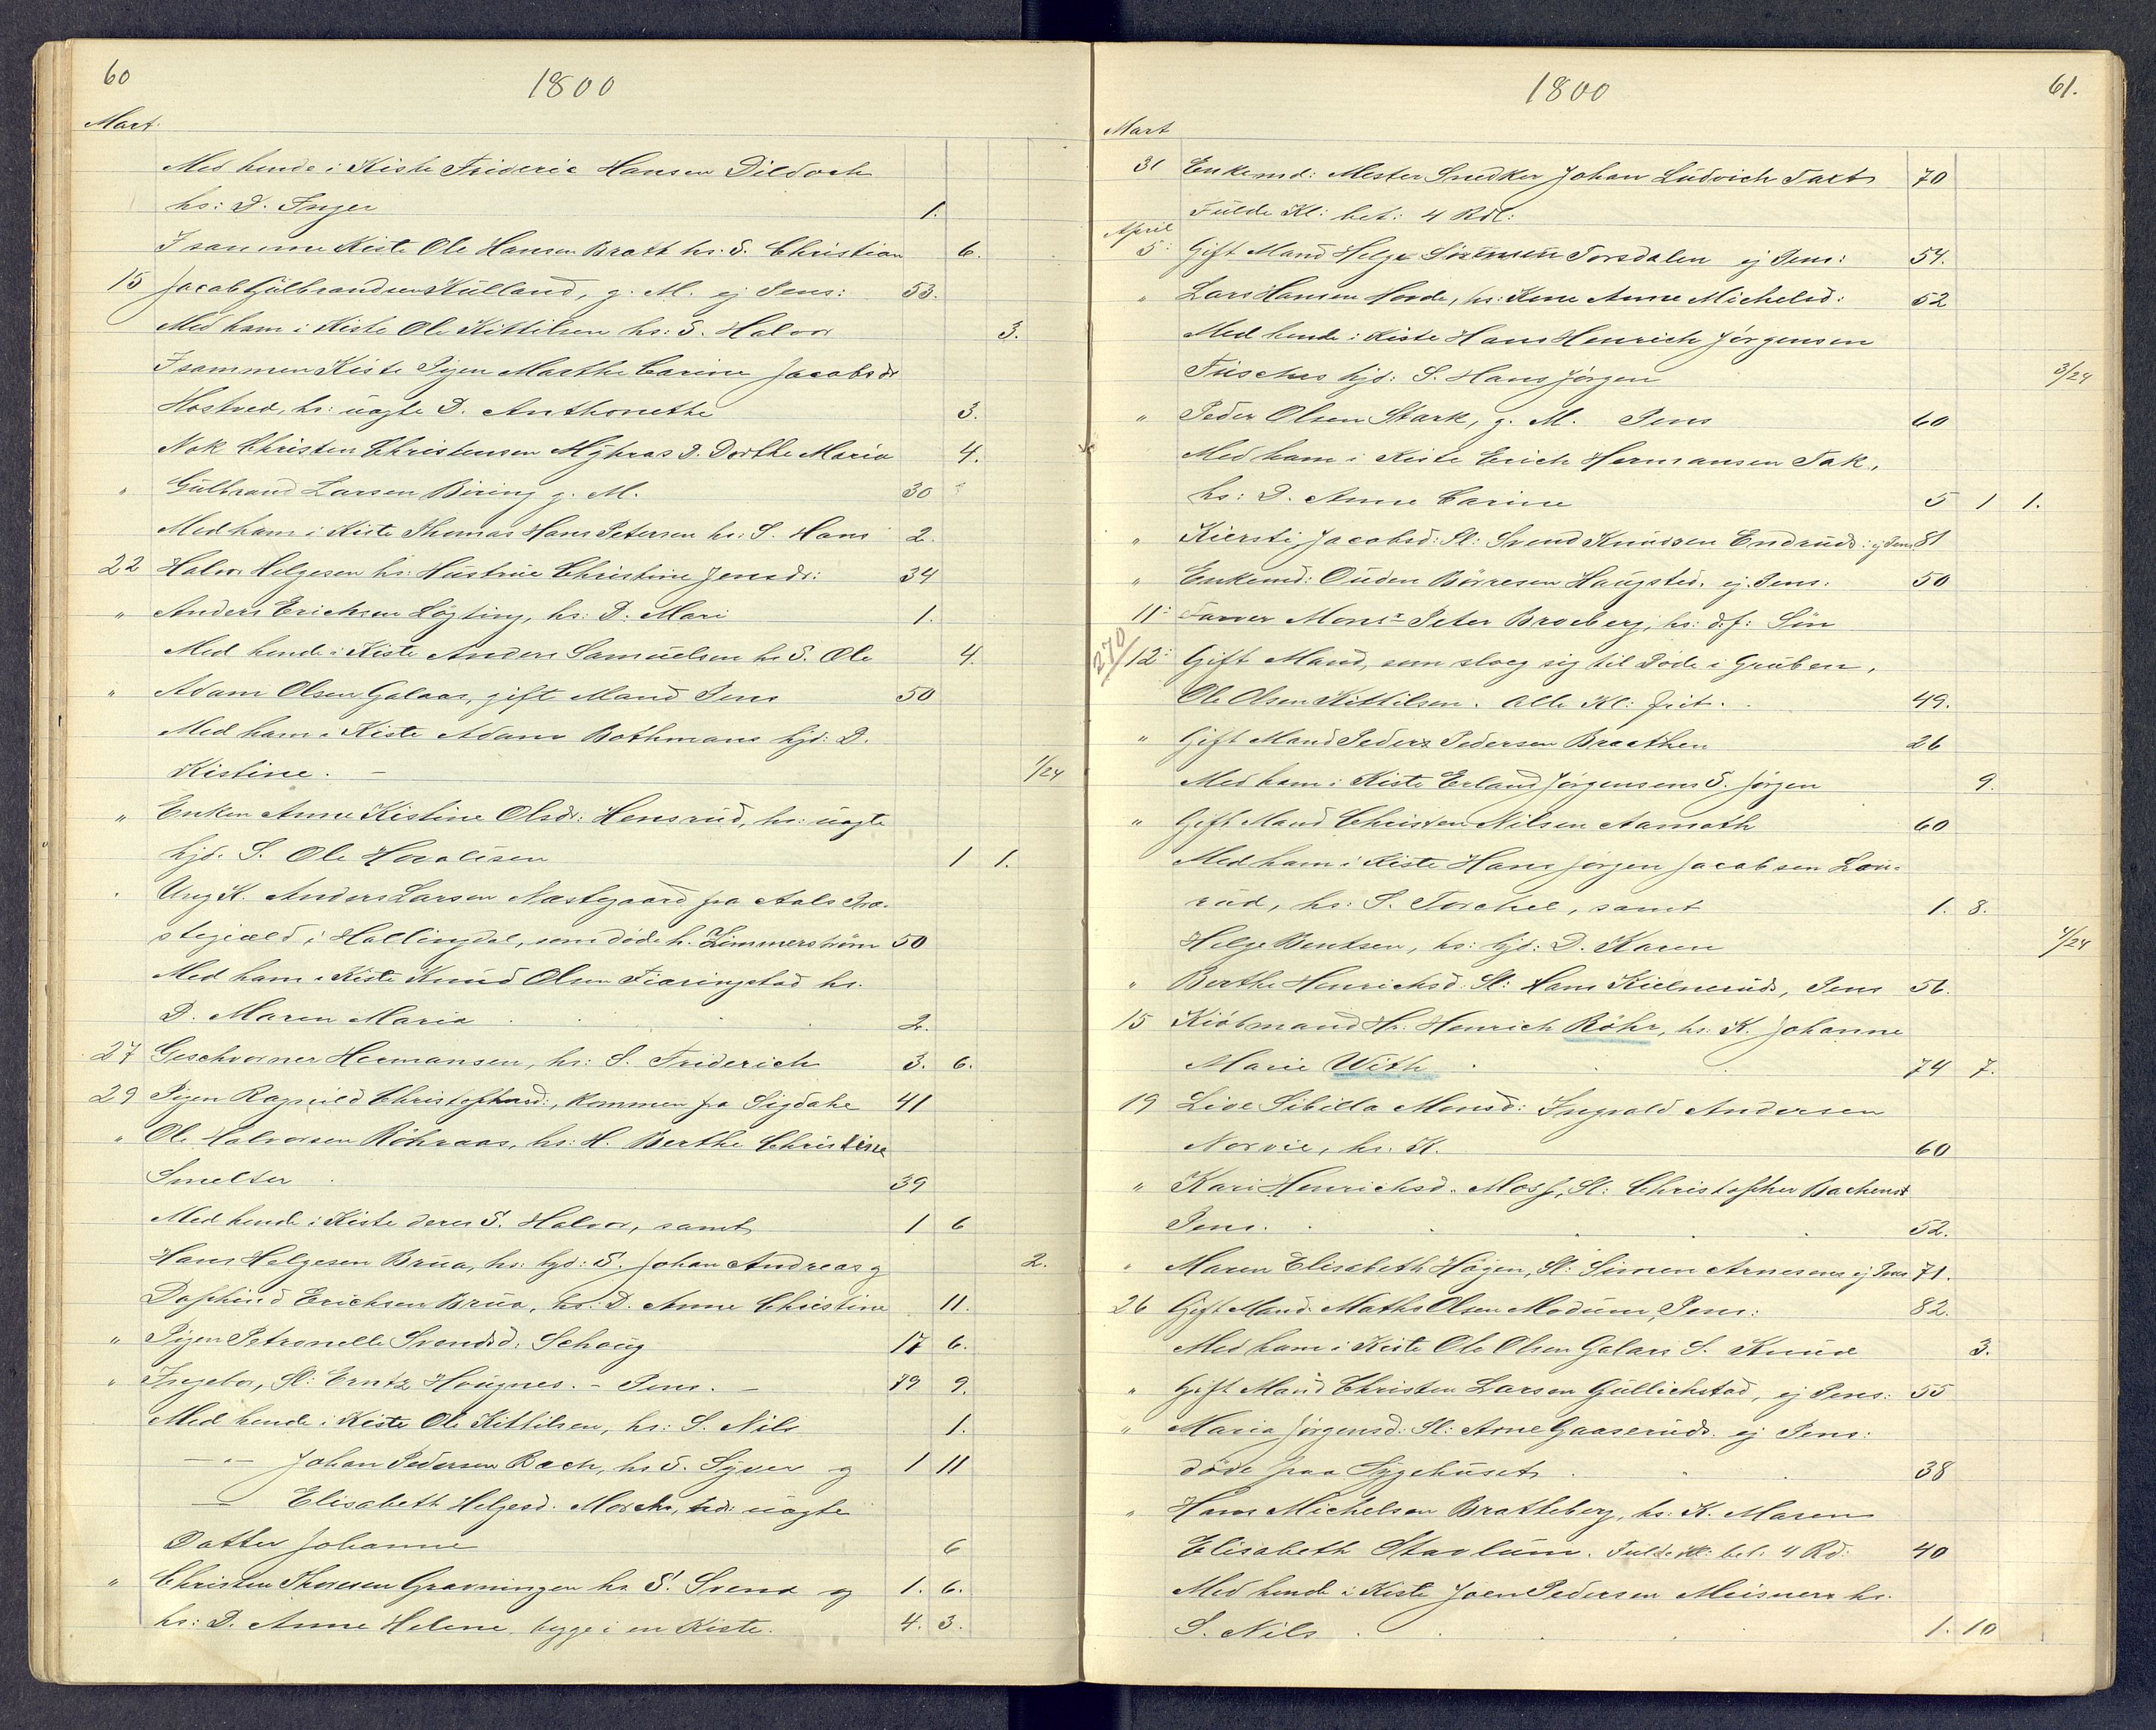 60
1800
Mart.
Med hende i Kiste Frideric Hansen Dildoch
hs: D. Inger 1.
I samme Kiste Ole Hansen Bratt hs: S. Christian 6.
15 Jacob Gülbrandsen Külland, g. M. ej Pens: 53.
Med ham i Kiste Ole Kittilsen hs: S. Halvor 3.
I sammen Kiste Pigen Marthe Carine Jacobsdr
Hostved, hs: üægte D. Anthonethe 3.
Nok Christen Christensen Myhras D. Dorthe Maria 4.
" Gülbrand Larsen Büring g. M. 30
Med ham i Kiste Thomas Hans Petersen hs: S. Hans 2.
22 Halvor Helgesen hs: Hüstrüe Christine Jensdr: 34
" Anders Erichsen Løgting, hs: D. Mari 1.
Med hende i Kiste Anders Samüelsen hs S. Ole 4.
" Adam Olsen Galaas, gift Mand Pens 50
Med ham i Kiste Adam Bothmans hjd: D.
Kistine. — 1/24
" Enken Anne Kistine Olsdr: Hensrüd, hs: üægte
hjd. S. Ole Hovalisen 1 1.
Ung K. Anders Larsen Næstegaard fra Aals Præ-
stegield i Hallingdal, som døde h. Zimmerstrøm 50
Med ham i Kiste Knüd Olsen Fiæringstad hs.
D. Maren Maria 2.
27 Geschvorner Hermansen, hs: S. Friderich 3. 6.
29 Pigen Ragnild Christophersd:, kommen fra Sigdahl 41
" Ole Halvorsen Röhraas, hs: H. Berthe Christine
Smelter 39
Med hende i Kiste deres S. Halvor, samt 1 6
Hans Helgesen Brüa, hs: hjd: S. Johan Andreas g 2.
Daphind Erichsen Brüa, hs: D. Anne Christine 11.
" Pigen Petronelle Svendsd: Schoug 17 6.
" Ingebor, Sl: Erntz Hougnes. - Pens. — 79 9.
Med hende i Kiste Ole Kittilsen, hs: S. Nils 1.
— " — Johan Pedersen Bech, hs S. Syver og 1 11
— Elisabeth Helgesd. Morch, hd: üægte
Datter Johanne 6
" Christen Thoresen Gravningen hs S. Svend og 1. 6.
hs: D. Anne Helene begge i en Kiste. 4. 3.
61.
1800
Mart
31 Enkemd: Mester Snedker Johan Lüdvich Taxt 70
Fülde Kl: bet: 4 Rdl:
April
5: Gift Mand Helge Simensen Torsdalen ej Pens: 54.
" Lars Hansen Hovde, hs: Kone Anne Michelsd: 52
Med hende i Kiste Hans Henrich Jørgensen
Füschers hjd: S. Hans Jørgen 3/24
" Peder Olsen Stark, g. M. Pens 60
Med ham i Kiste Erich Hermansen Tak,
hs: D. Anne Carine 5 1 1.
" Kiersti Jacobsd: Sl: Svend Knüdsen Endrüds: ej Pens 81
" Enkemd: Ouden Börresen Haugsted. ej Pens: 50
11: Farver Monsr Peter Broeberg, hs: d.f: Søn
270
12: Gift Mand, som slog sig til Døde i Grüben,
Ole Olsen Kittilsen. Alle Kl: frit. 49.
" Gift Mand Peder Pedersen Braathen 26
Med ham i Kiste Erland Jørgensens S. Jørgen 9.
" Gift Mand Christen Nilsen Aamoth 60
Med ham i Kiste Hans Jørgen Jacobsen Lov-
rüd, hs: S. Torchel, samt 1. 8.
Helge Bentsen, hs: hjd: D. Karen 4/24
" Berthe Henrichsd. Sl: Hans Kielnerüds, Pens 56.
15 Kiøbmand Hr: Henrich Röhr, hs: K. Johanne
Marie With 74 7.
19 Live Sibilla Monsd: Ingvald Andersen
Norvie, hs. K. 60
" Kari Henrichsd. Moss, Sl: Christopher Bachens
Pens. 52.
" Maren Elisabeth Høgen, Sl: Simen Arnesens ej Pens 71.
26 Gift Mand Maths Olsen Modüm, Pens: 82.
Med ham i Kiste Ole Olsen Galaas S. Knüd 3.
" Gift Mand Christen Larsen Güllichstad, ej Pens: 55
" Maria Jørgensd: Sl: Arne Gaaserüds. ej Pens:
døde paa Sygehüset 38
" Hans Michelsen Bratteberg, hs: K. Maren
Elisabeth Stavlüm. Fulde Kl: bet: 4 Rd: 40
Med hende i Kiste Joen Pedersen Meisners hs.
S. Nils 1. 10